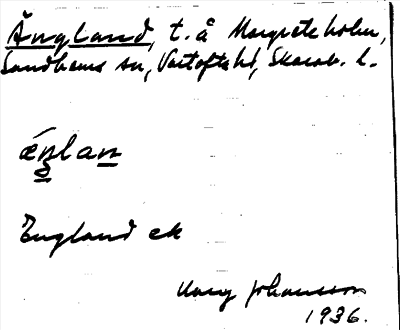 Ängland, t. å Margreteholm,
Sandhems sn, Vartofta hd, Skarab. l.
ǽnlan
England ek
Mary Johansson
1936.